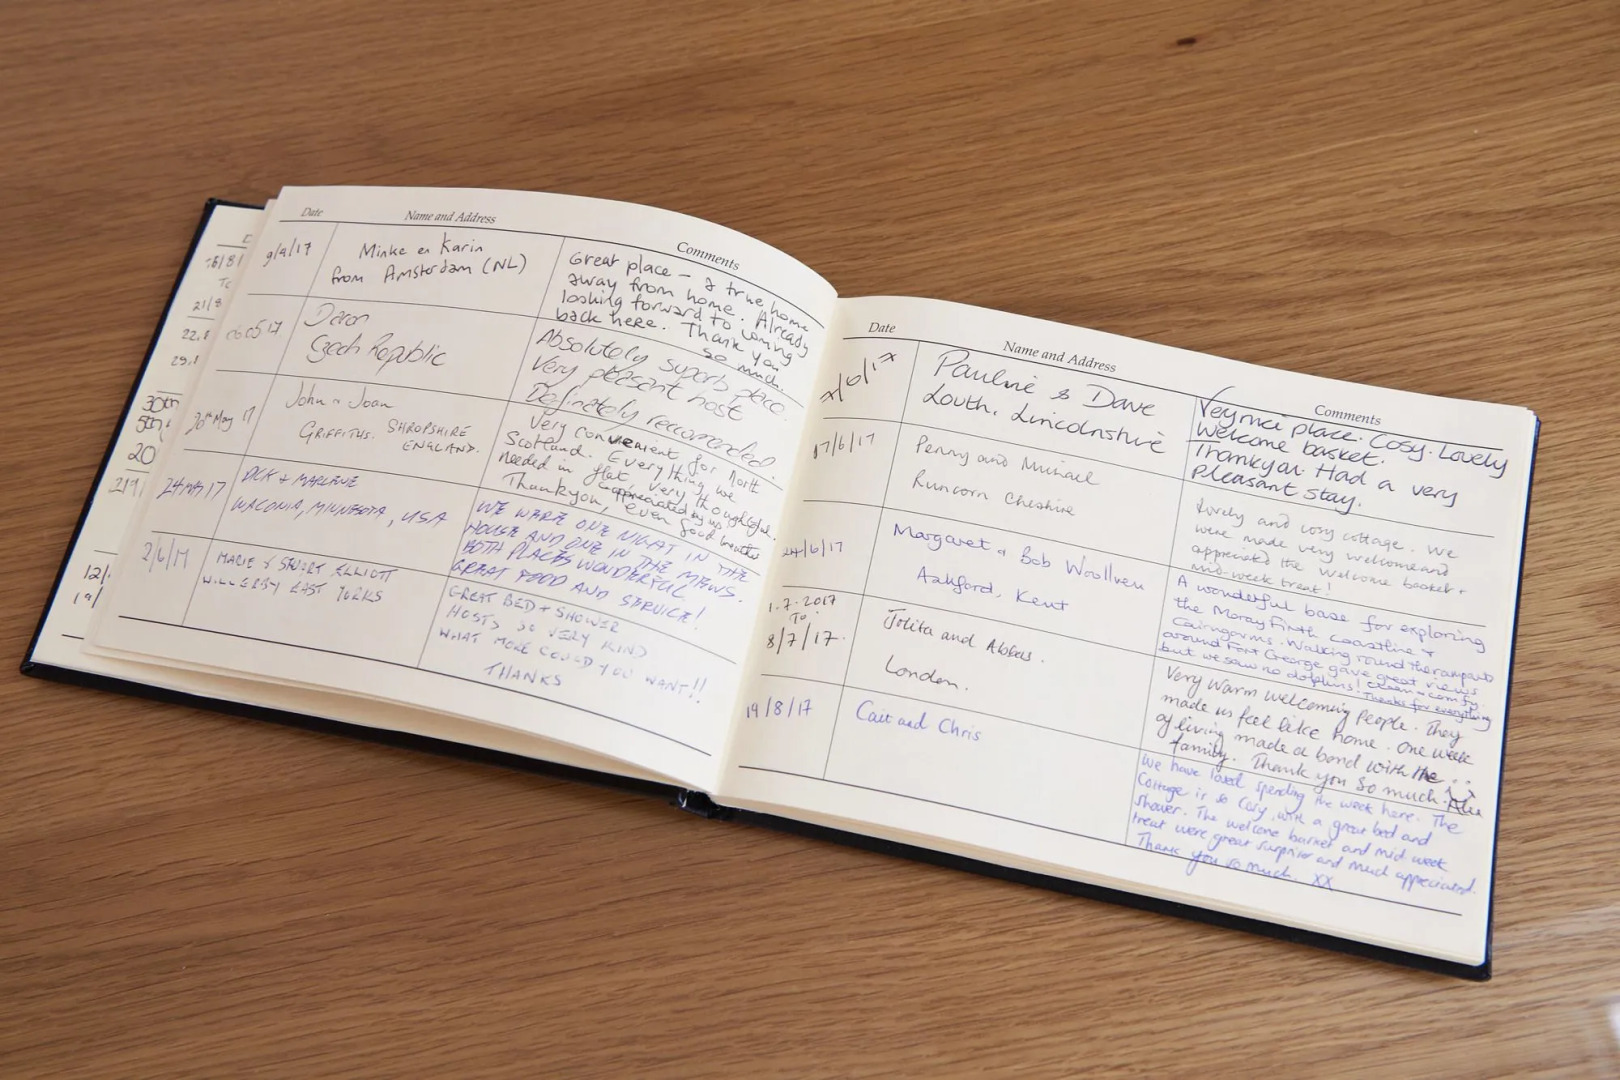 Date Name and Address Comments
9/4/17
Minke en Karin
from Amsterdam (NL)
Great place – a true home
away from home. Already
looking forward to coming
back here. Thank you
so much.
05 17
Czech Republic
Absolutely superb place.
Very pleasant host
Definitely recomended.
20th May 17
John & Joan
GRIFFITHS. SHROPSHIRE
ENGLAND.
Very convenient for North
Scotland. Everything we
needed in flat very thoughtful.
appreciated by us
Thankyou, even good
24 MAY 17
DICK + MARLENE
WACONIA, MINNESOTA, USA
WE WERE ONE NIGHT IN THE
HOUSE AND ONE IN THE MEWS.
BOTH PLACES WONDERFUL
GREAT FOOD AND SERVICE!
2/6/17
MARIE & STUART ELLIOTT
WILLERBY EAST YORKS
GREAT BED + SHOWER
HOSTS SO VERY KIND
WHAT MORE COULD YOU WANT!!
THANKS
21/8
22.8
29.
30th
5th
20
219
12/
19/
Date Name and Address Comments
/6/17
Pauline & Dave
Louth. Lincolnshire
Very nice place. Cosy. Lovely
Welcome basket.
Thankyou. Had a very
pleasant stay.
17/6/17
Penny and Michael
Runcorn Cheshire
Lovely and cosy cottage. We
were made very welcome and
appreciated the welcome basket +
mid-week treat!
24/6/17
Margaret & Bob Woollven
Ashford, Kent
A wonderful base for exploring
the Moray Firth coastline +
Cairngorms. Walking round the ramparts
around Fort George gave great views
but we saw no dolphins! Clean + comfy.
Thanks for everything
1.7.2017
To
8/7/17.
Jolita and Abbas.
London.
Very warm welcoming people. They
made us feel like home. One week
of living made a bond with the
family. Thank you so much.
19/8/17
Cait and Chris
We have loved spending the week here. The
Cottage is so cosy, with a great bed and
shower. The welcome basket and mid week
treat were great surprise and much appreciated.
Thank you so much. XX